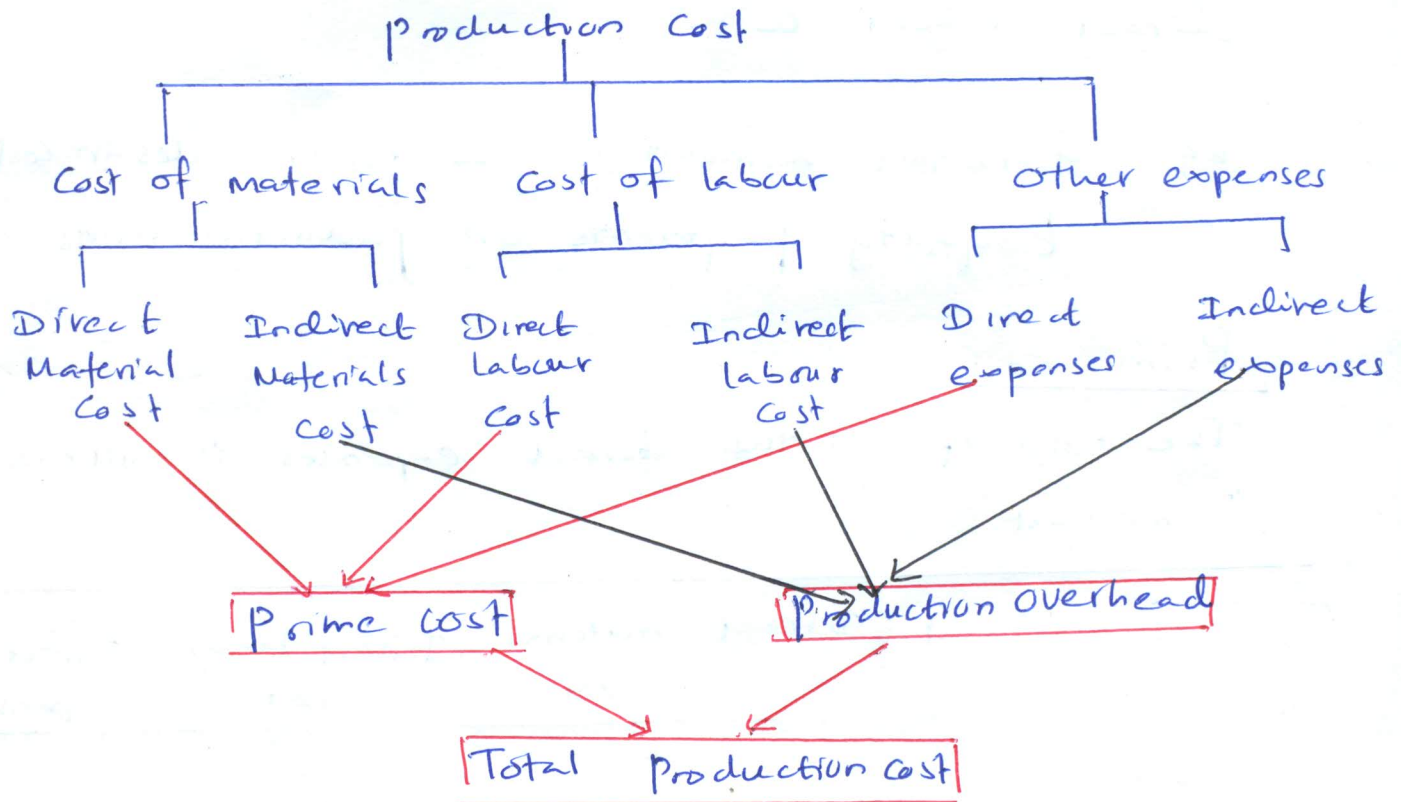 Production Cost
Cost of materials
Cost of labour
Other expenses
Direct
Material
Cost
Indirect
Materials
Cost
Direct
Labour
Cost
Indirect
labour
Cost
Direct
expenses
Indirect
expenses
Prime cost
Production overhead
Total Production cost